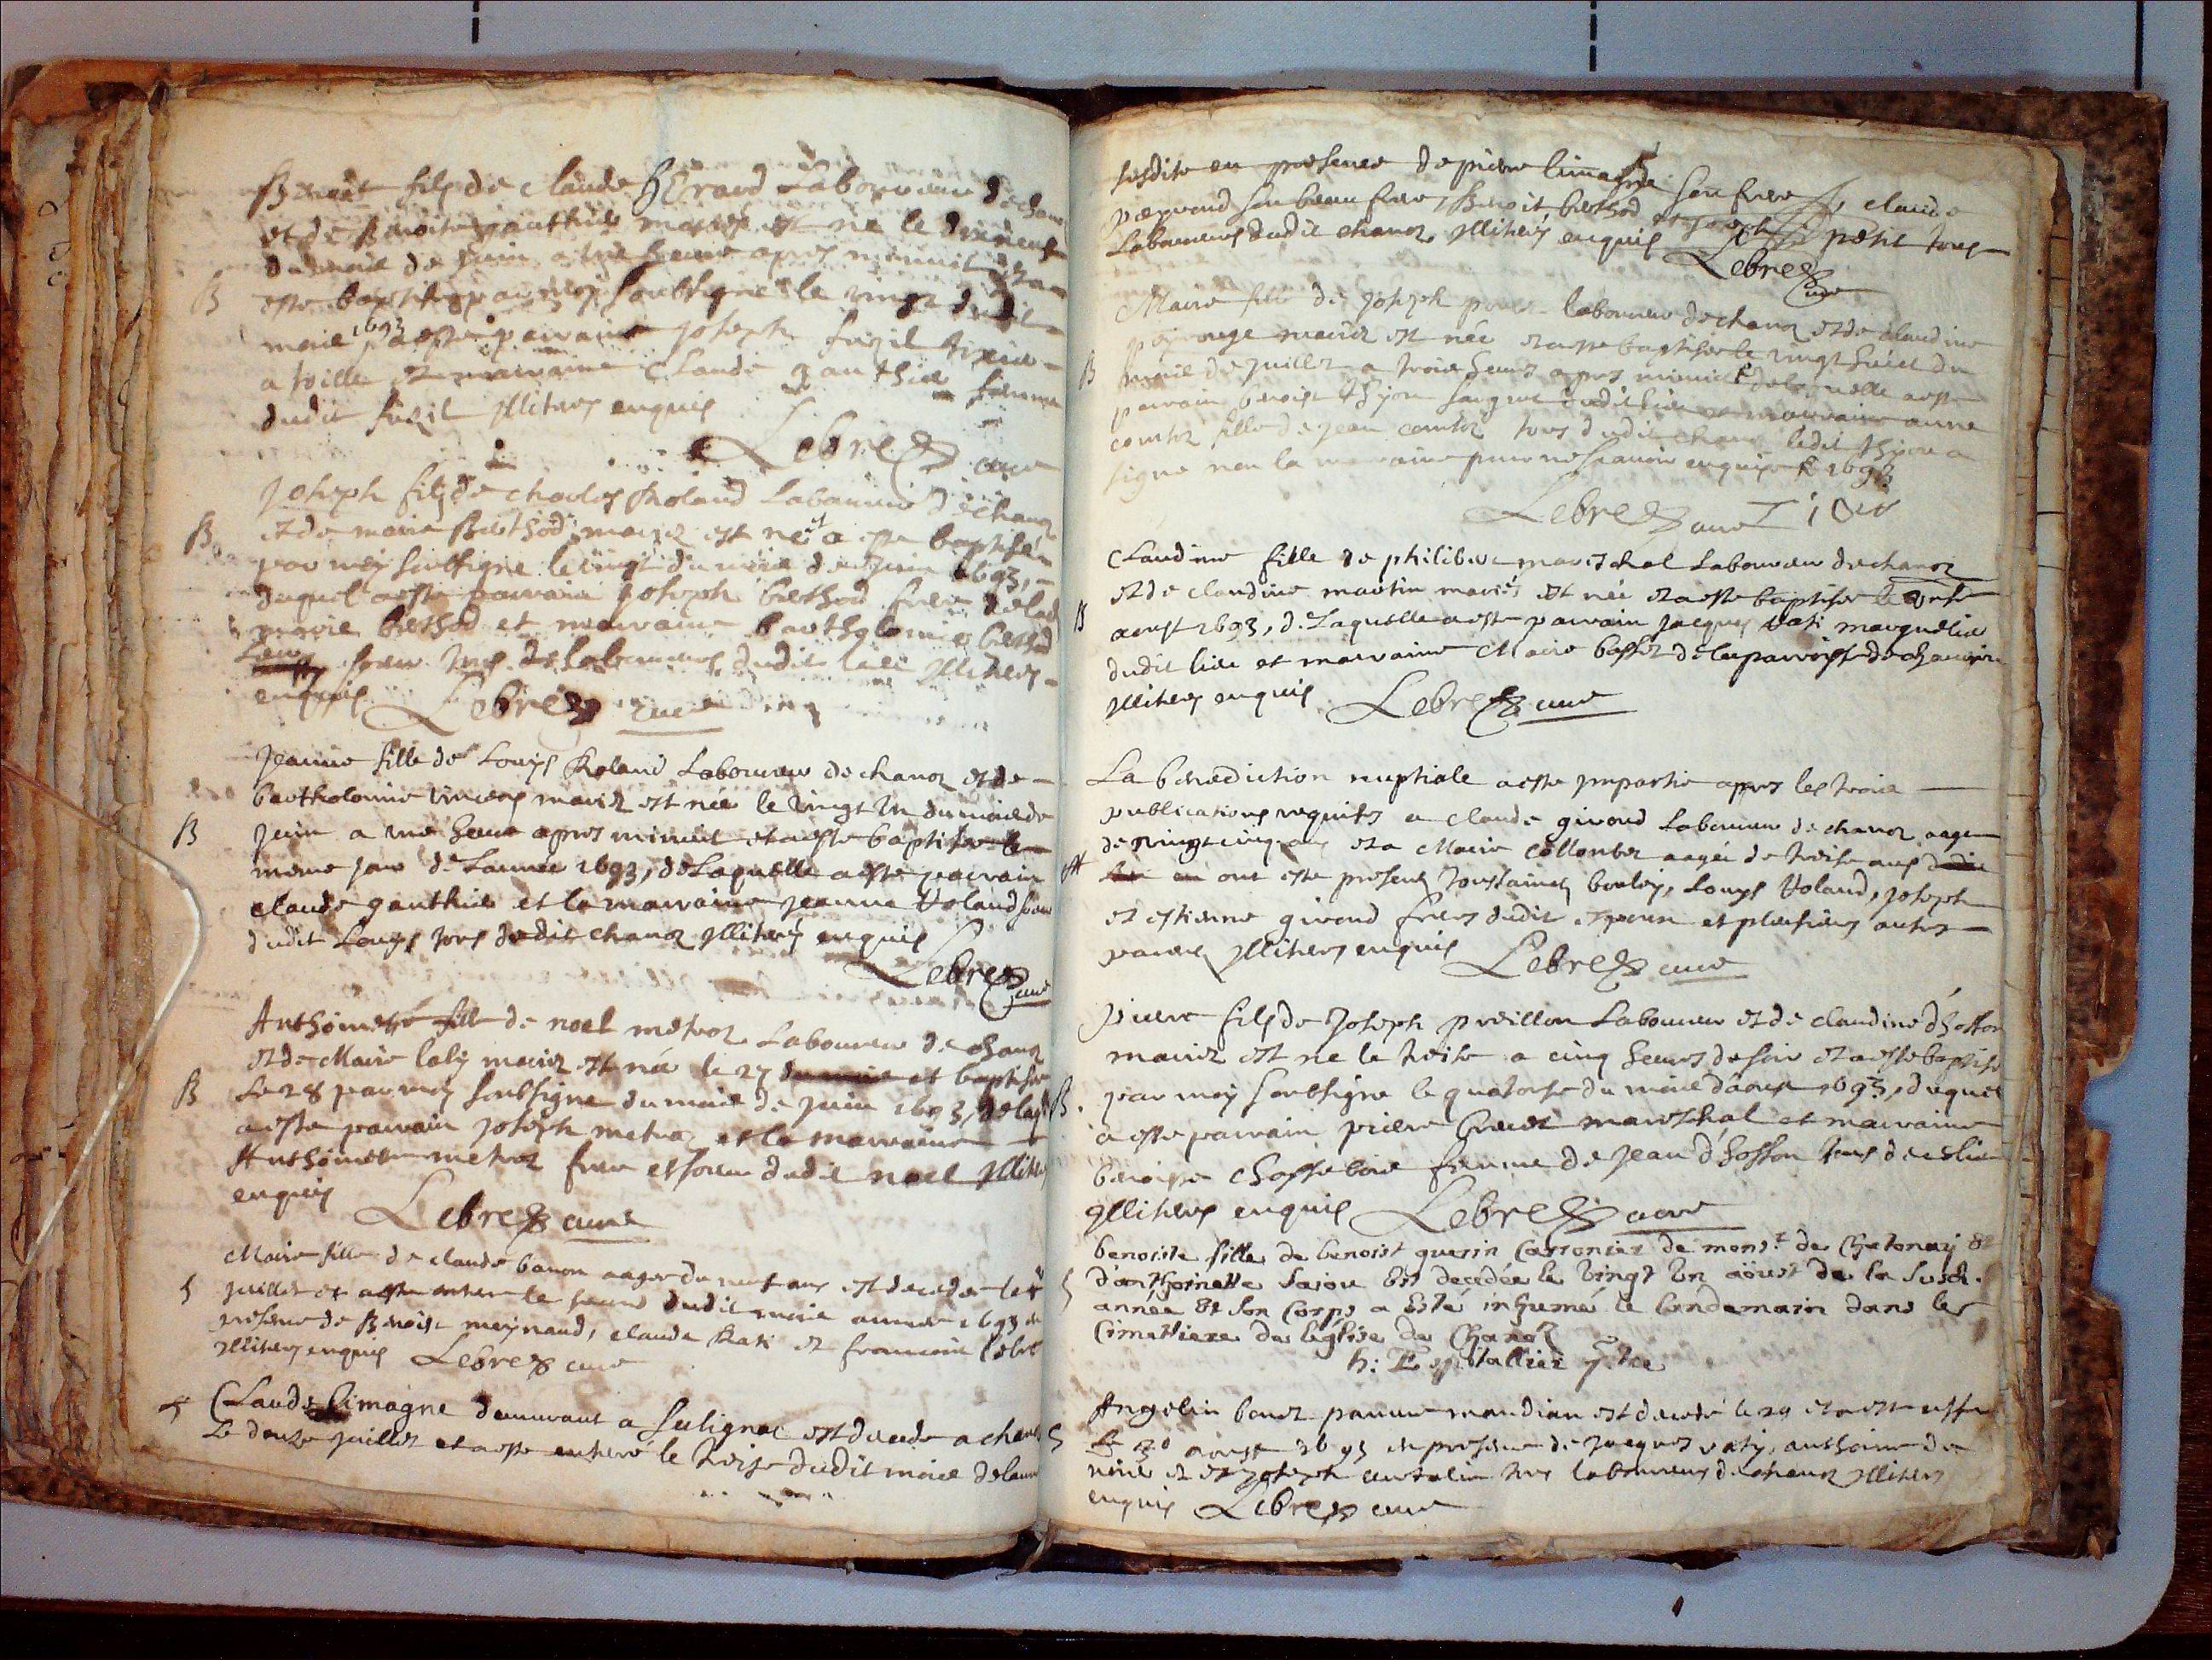 Benoit fils de claude Laboureur de chanoz
et de Benoite gauthier mariés est né le dixneuf
du mois de juin a une heure apres minuit et a
B este baptisé par moy soubsigné le vingt dudit
mois 1693 a este parrain Joseph fusil
a et marraine Claude gauthier femme
dudit fusil jlliteres enquis
Lebrez cure
Joseph fils de charles Roland Laboureur de chanoz
et de marie Berthod mariez est né et a este baptisé
B par moy soubsigné le vingt du mois de juin 1693,
duquel a este parrain joseph berthod frere de lad
marie berthod et marraine bartholomie berthod
Leur soeur tous de laboureurs dudit lieu jlliteres
enquis Lebrez cure
Jeanne fille de Louys Roland Laboureur de chanoz et de
bartholomie vincens mariez est née le vingt un du mois de
B juin a une heure apres minuit et a este baptisee le
meme jour de Lannee 1693, de Laquelle a este parrain
claude gauthier et la marraine jeanne Roland soeur
dudit Louys tous dedit chanoz jlliteres enquis
Lebrez cure
Anthoinette fille de noel metraz Laboureur de chanoz
et de Marie laly mariez est née le 27 du mois et baptisee
B Le 28 par moy soubsigne du mois de juin 1693, de laq
a este parrain joseph metraz et la marraine
Anthoinette metraz frere et soeur dudit noel jllitere
enquis
Lebrez cure
Marie fille de claude bavon aagee de neuf ans est decedee le
S juillet et a este enterree le second dudit mois annee 1693 en
presence de Benoist meynaud, claude Rati et francoin
jlliteres enquis Lebrez cure
S Claude limagne demeurant a sulignat est decede a chanoz
Le douze juillet et a este enterré le treize dudit mois de lannee
susdite en presence de pierre limagne son frere, claude
perraud son beau frere, Benoit berthod et joseph petit tous
Laboureurs dudit chanoz jlliteres enquis Lebrez
cure
Marie fille de joseph laboureur de chanoz et de claudine
mariez est née et a este baptisee le vingt huict du
B mois de juillet a trois heures apres minuit de laquelle a este
parrain benoist thyon dudit lieu et marraine anne
comtet fille de jean comtet tous dudit chanoz ledit thyon a
signe non la marraine pour ne scavoir enquise 1693
Lebrez cure
Claudine fille de philibert mareschal Laboureur de chanoz
et de claudine martin mariés est née et a este baptisee le onse
B aoust 1693, de Laquelle a este parrain jacques Rati marguelier
dudit lieu et marraine Marie basset de la parroisse de
jlliteres enquis Lebrez cure
La benediction nuptiale a este jmpartie apres les trois
publications requises a claude giroud Laboureur de chanoz aage
de vingt cinq ans et a Marie collomber aagée de treise ans dudit
M ont este presens Toussainct bouley, Louys Roland, joseph
et estienne giroud freres dudit espoux et plusieurs autres
parens jlliteres enquis Lebrez cure
Pierre fils de Joseph previllon Laboureur et de claudine d'hosson
mariez est né le treise a cinq heures de soir et a este baptise
B. par moy soubsigne le quatorse du mois d'aoust 1693, duquel
a este parrain pierre mareschal et marraine
benoiste femme de jean d'hosson tous de ce lieu
jlliteres enquis Lebrez cure
benoiste fille de benoist guerin de mons.r de Chatenay &
S d'anthoinette est decedée le vingt un aöust de la susd.
année & son corps a esté inhumé le landemain dans le
Cimetiere de leglise de Chanoz
h: Espitallier ptre
Angelin pauvre mandian est decedé le 29 et a este
S Le 30 aoust 1693 en presence de jacques raty, anthoine
et joseph tous laboureurs de chanoz jlliteres
enquis Lebrez cure